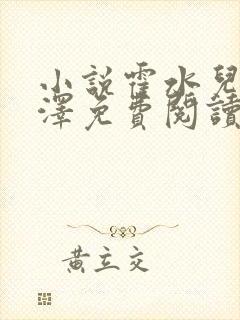 小說霍水兒
澤免費閱讀
黃立交